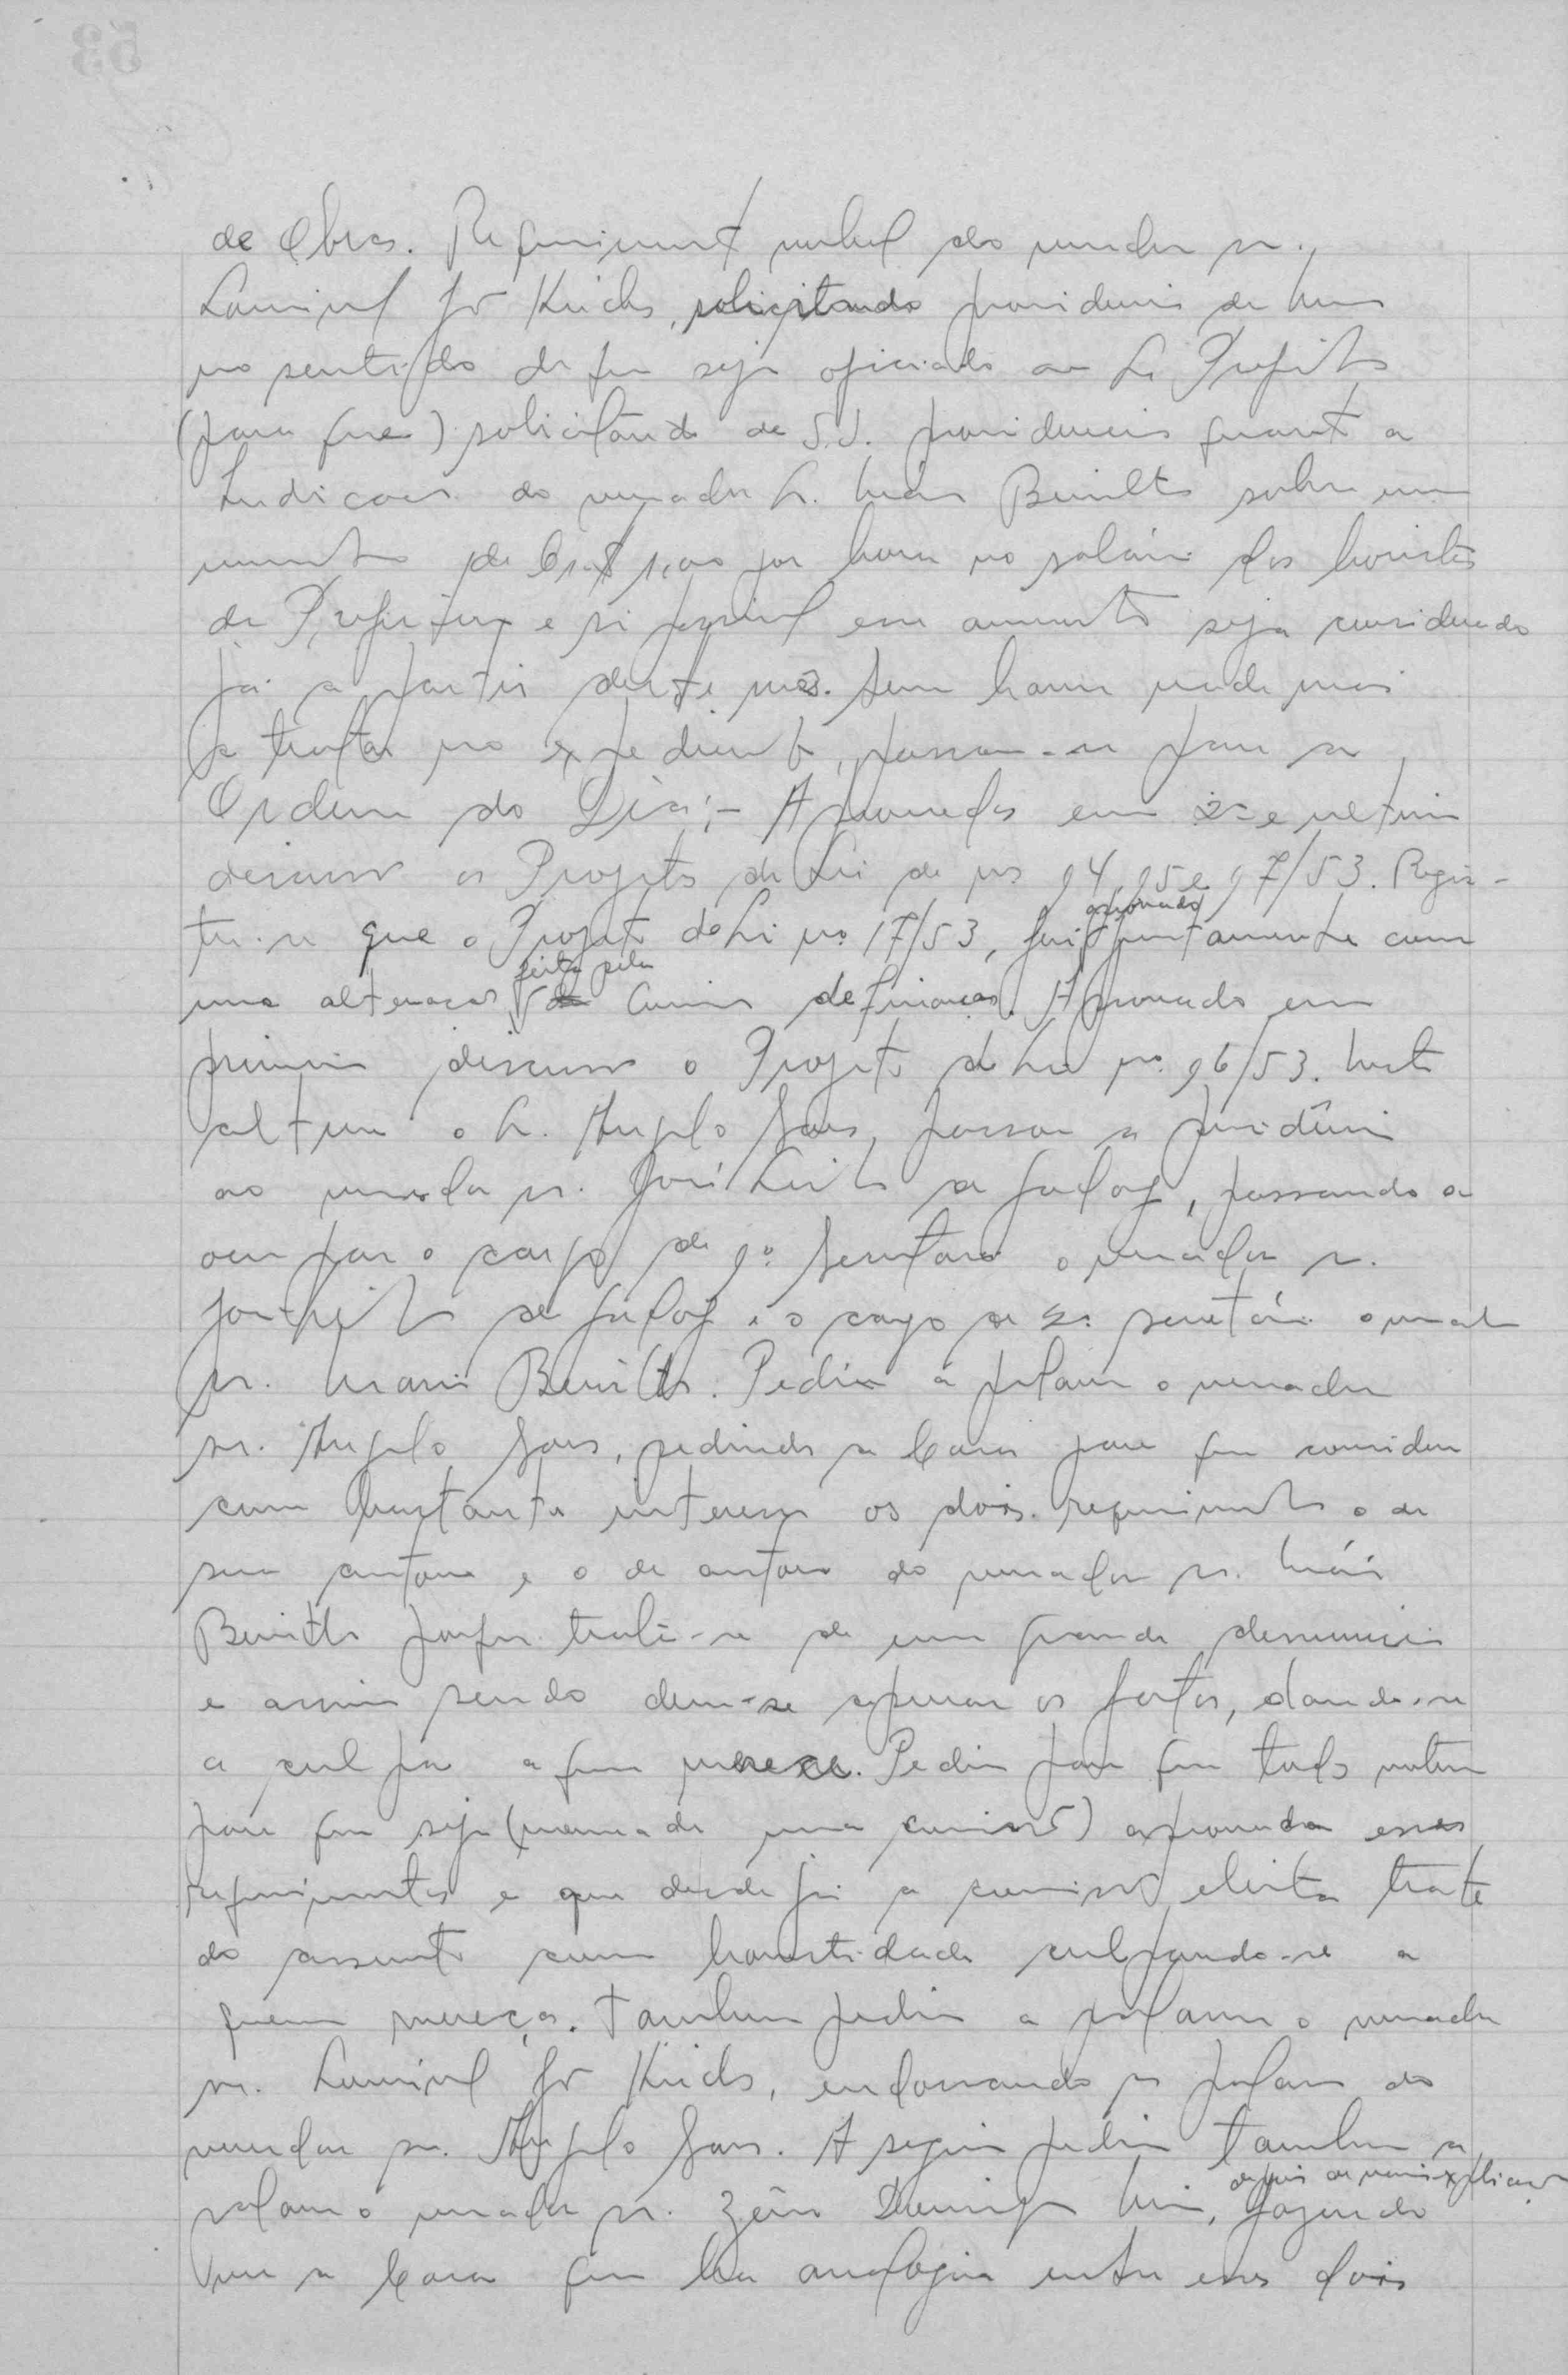 de Obras. Requerimento verbal do vereador sr.
Lourival Jr Kuchs, solicitando providencia da Mesa
no sentido de que seja oficiado ao Sr. Prefeito
(para que) solicitando de S.S. providencias quanto a
Indicacao do vereador Sr. Mario Benitto sobre um
aumento de por hora no salário dos horistas
da Prefeitura e si possivel esse aumento seja considerado
já a partir deste mes. Sem haver nada mais
a tratar no expediente, passou-se para a
Ordem do Dia:- Aprovados em 2ª e ultima
discussão os Projetos de Lei de nos 94, 95 e 97/53. Regis-
tra-se que o Projeto de Lei no. 17/53, foi aprovado juntamente com
uma alteracao feita pela Comissão de finanças. Aprovado em
primeira discussão o Projeto de Lei no. 96/53. Nesta
altura o Sr. Angelo passou a presidência
ao vereador sr. José Leite de Godoy, passando a
ocupar o cargo de 1º Secretario o vereador sr.
José Leite de Godoy e o cargo de 2º secretário o vereador
sr. Mario Benitto. Pediu a palavra o vereador
sr. Angelo, pedindo a Casa para que considere
com bastante interesse os dois requerimentos o de
sua autoria e o de autoria do vereador sr. Mário
Benitto porque trata-se de uma grande denuncia
e assim sendo deve-se apurar os fatos, dando-se
a culpa a quem merece. Pediu para que todos votem
para que seja (nomeada uma comissão) aprovada esses
requerimentos e que desde já a comissão eleita trate
do assunto com honestidade culpando-se a
quem mereça. Tambem pediu a palavra o vereador
sr. Lourival Jr Kuchs, endossando as palavras do
vereador sr. Angelo. A seguir pediu tambem a
palavra o vereador sr. Zeno Domingos, depois de varias explicações fazendo
ver a Casa que ha analogia entre esses dois